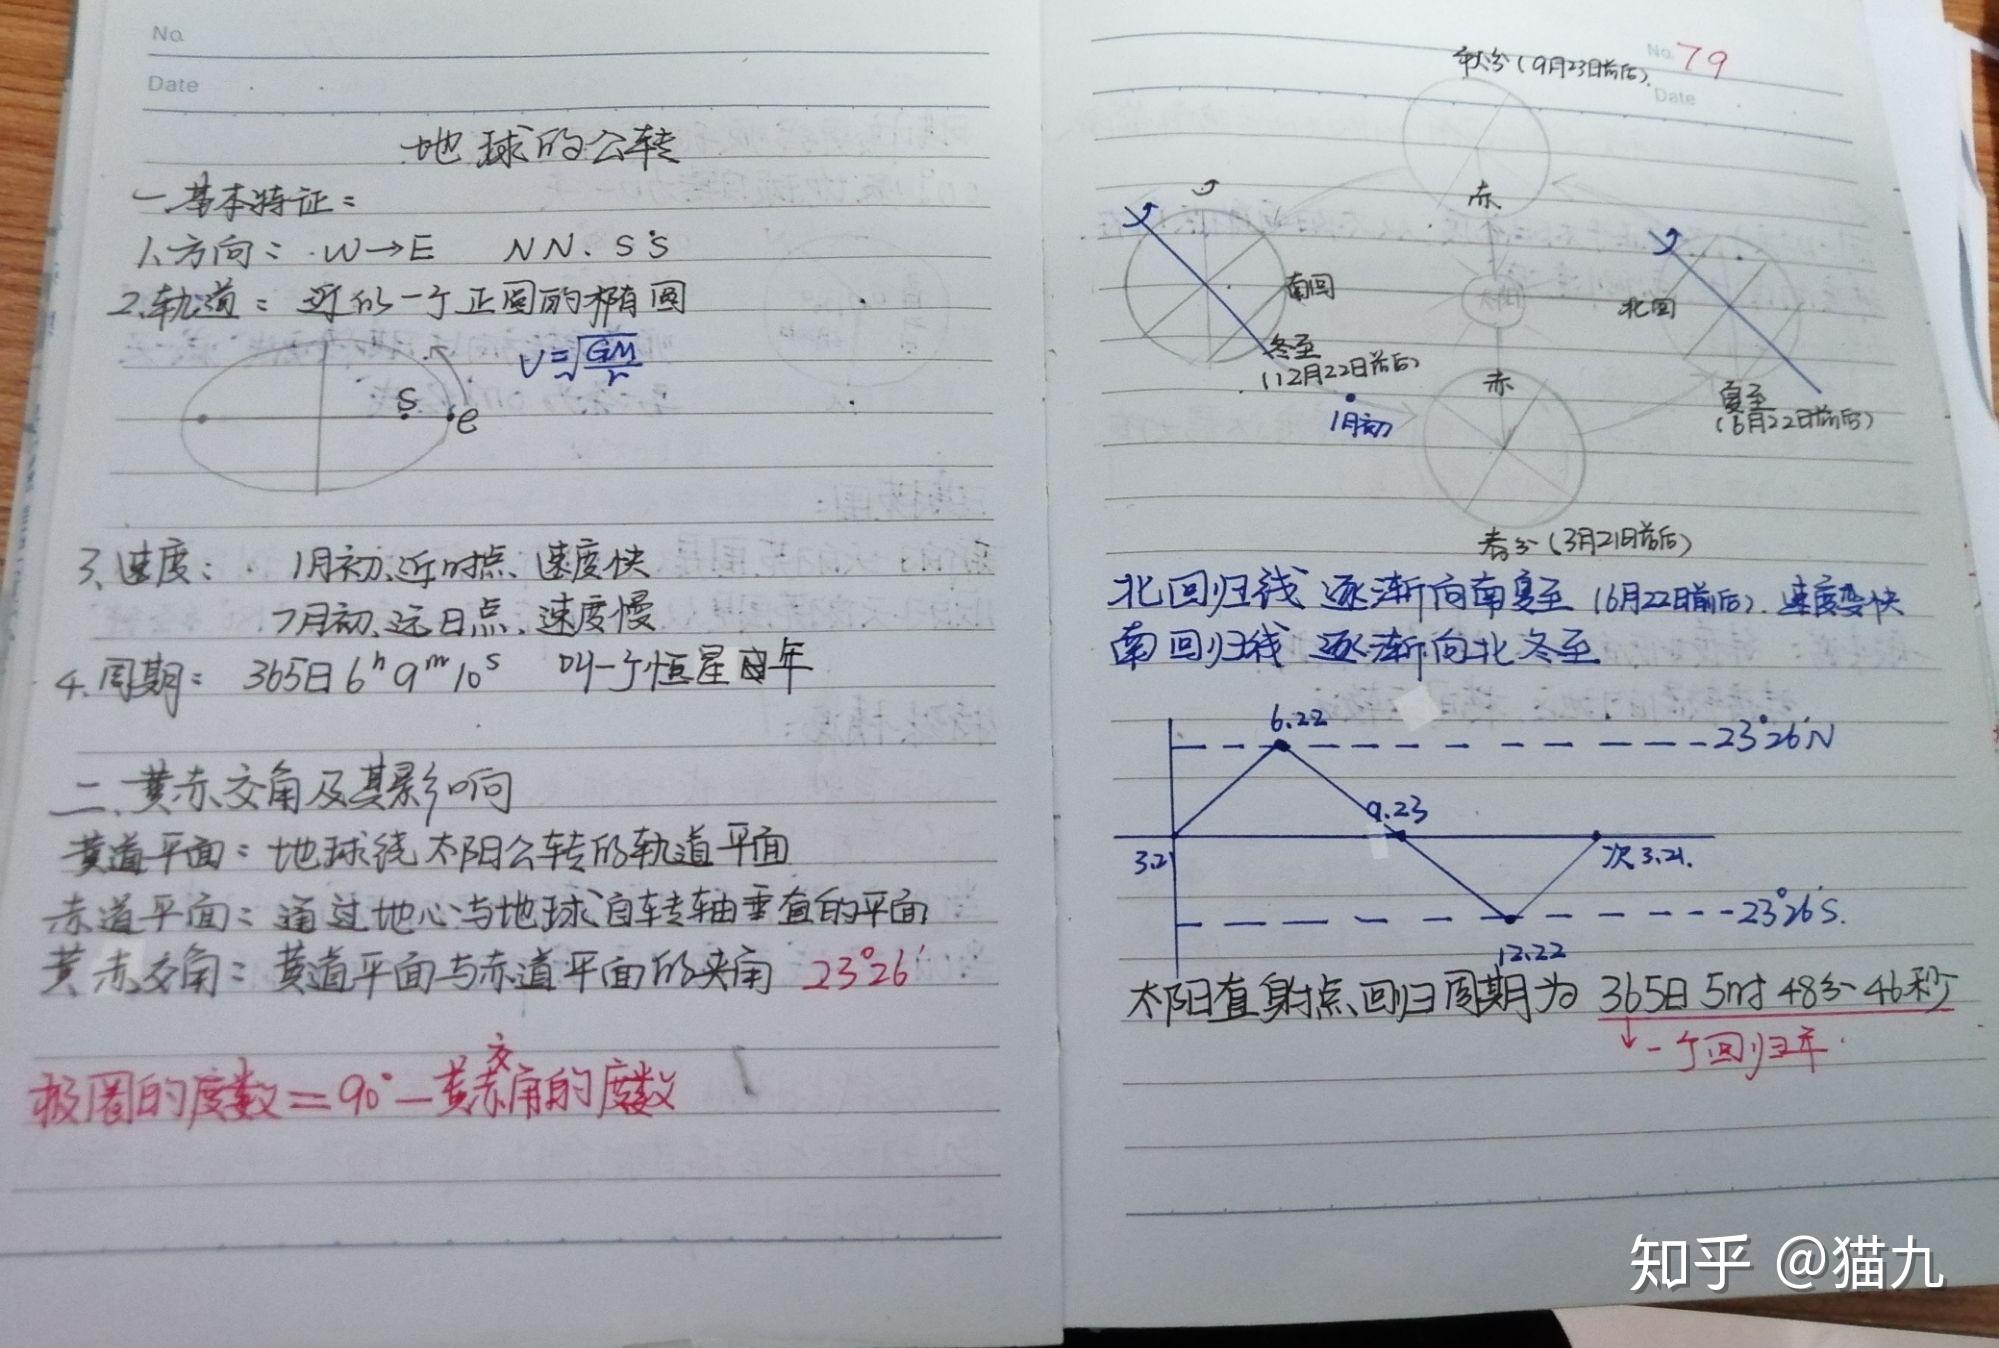 No.
Date
地球的公转
一.基本特证：
1.方向： W→E NN.SS
2.轨道：近似一个正圆的椭圆
V=√GM/r
S
e
3.速度： 1月初、近日点、速度快
7月初、远日点、速度慢
4.周期：365日6h9m10s 叫一个恒星年
二.黄赤交角及其影响
黄道平面：地球绕太阳公转的轨道平面
赤道平面：通过地心与地球自转轴垂直的平面
黄赤交角：黄道平面与赤道平面的夹角 23°26′
极圈的度数=90°-黄赤交角的度数
No. 79
Date
秋分(9月23日前后)
赤
南回
北回
冬至
(12月22日前后)
1月初
赤
夏至
(6月22日前后)
春分(3月21日前后)
北回归线 逐渐向南夏至 (6月22日前后).速度变快
南回归线 逐渐向北冬至
6.22
23°26′N
9.23
3.21
次3.21.
23°26′S.
12.22
太阳直射点回归周期为 365日5时48分46秒
↓一个回归年.
知乎 @猫九